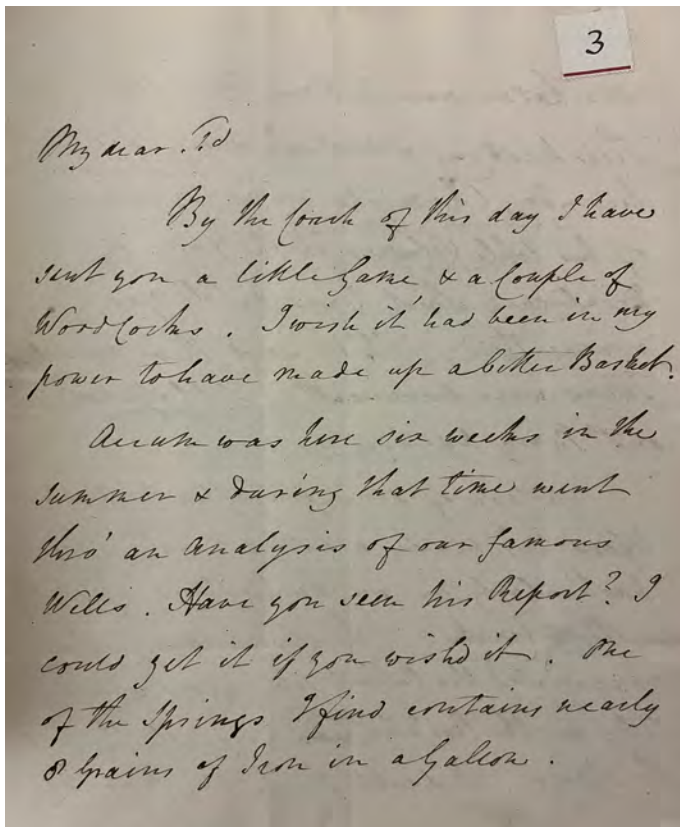 3
My dear Sr
By the Coach of this day I have
sent you a little Game, & a Couple of
WoodCocks. I wish it had been in my
power to have made up a better Basket.
Accum was here six weeks in the
summer & during that time went
thro' an Analysis of our famous
Wells. Have you seen his Report? I
could get it if you wish'd it. One
of the Springs I find contains nearly
8 Grains of Iron in a Gallon.